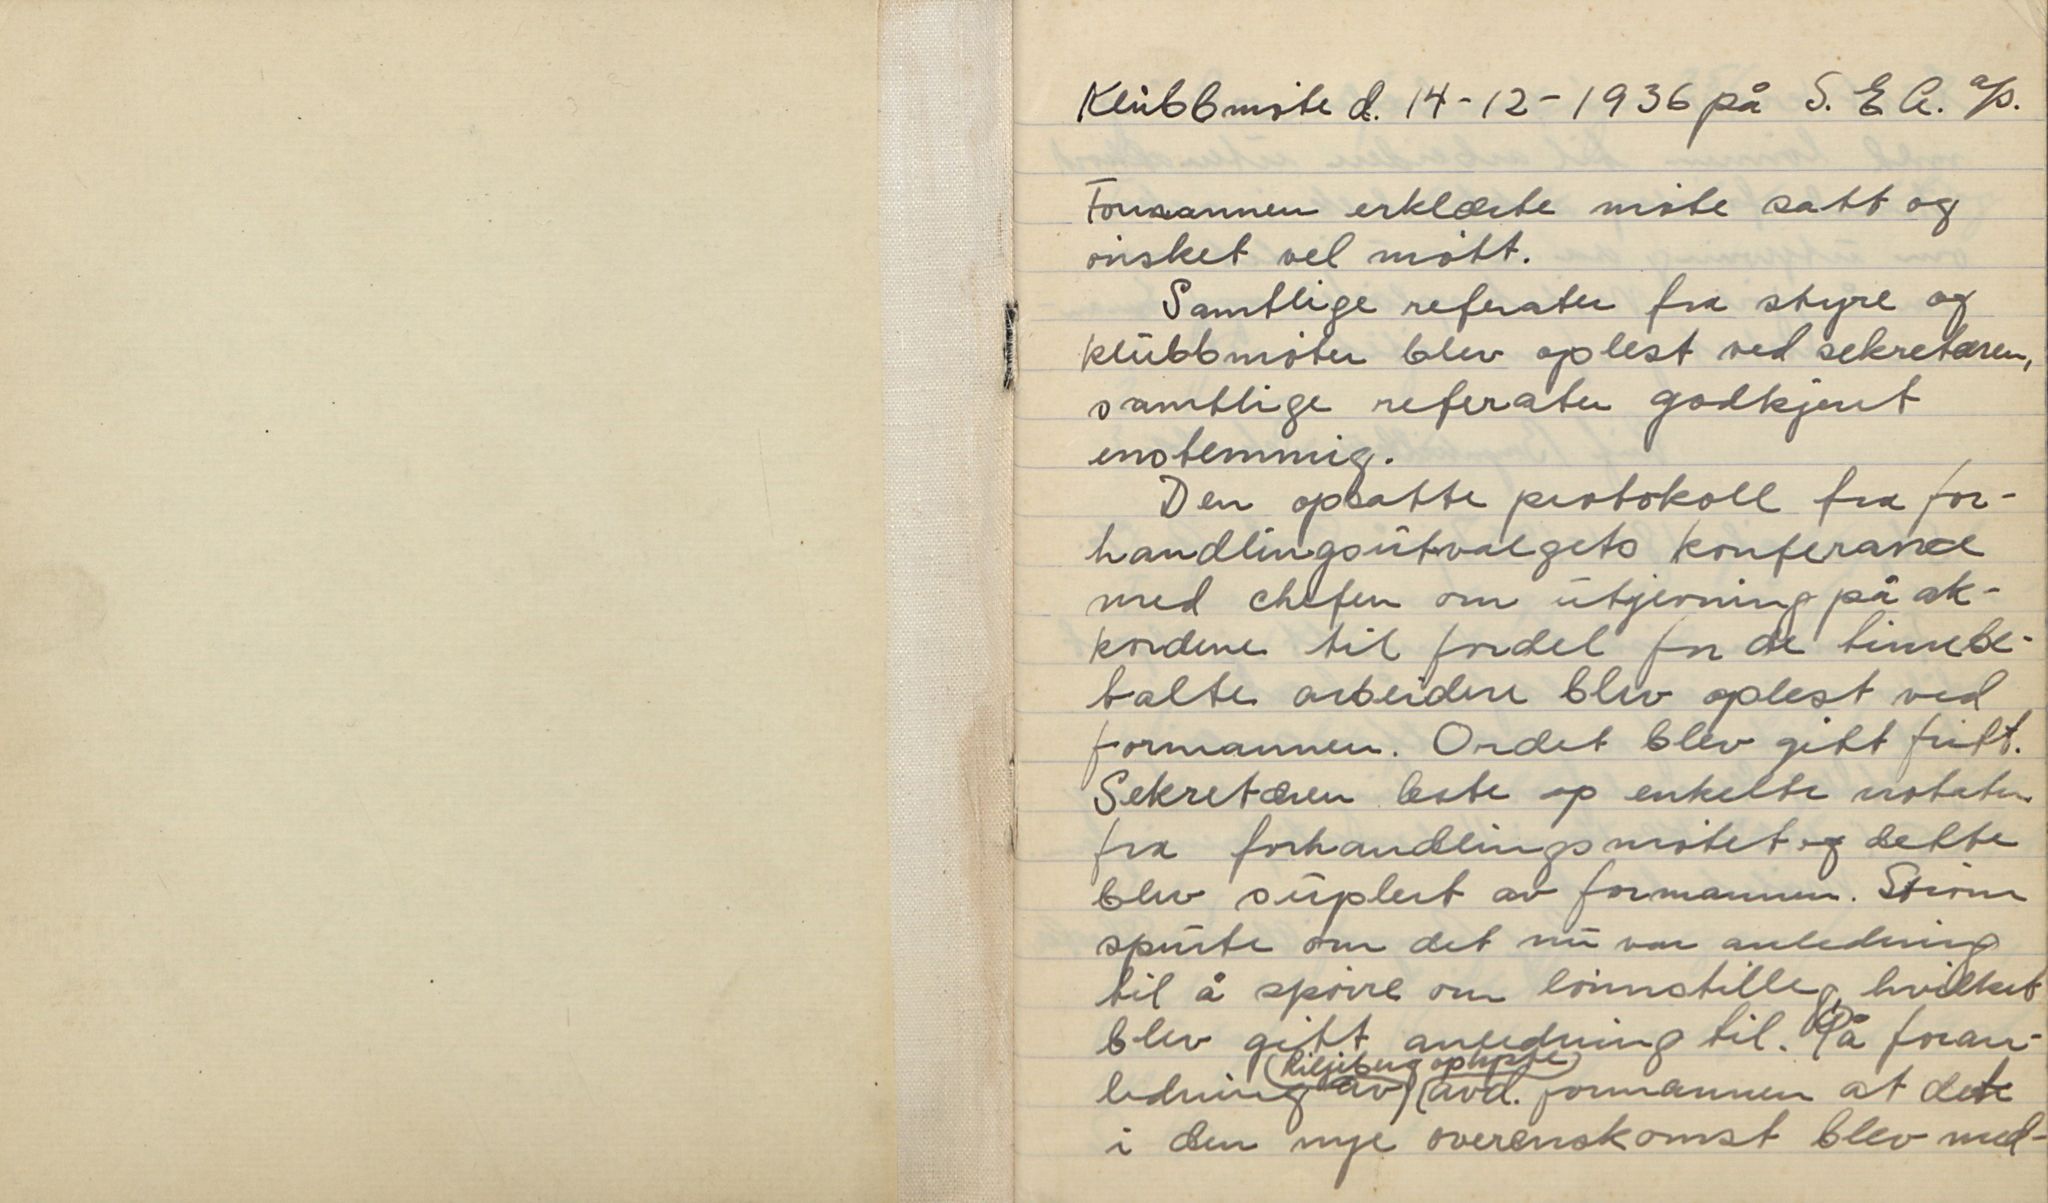 Klubbmøte d. 14-12-1936 på S. E A. a/s.
Formannen erklærte møte satt og
ønsket vel møtt.
Samtlige referater fra styre og
klubbmøter blev oplest ved sekretæren,
samtlige referater godkjent
enstemmig.
Den opsatte protokoll fra for-
handlingsutvalgets konferanse
med chefen om utjevning på ak-
kordene til fordel for de timebe-
talte arbeidere blev oplest ved
formannen. Ordet blev gitt fritt.
Sekretæren leste op enkelte notater
fra forhandlingsmøtet og dette
blev suplert av formannen. Strøm
spurte om det nu var anledning
til å spørre om lønnstilleg, hvilket
blev gitt anledning til. På foran-
(Liljeberg oplyste)
ledning av) (avd. formannen at dete
i den nye overenskomst blev med-